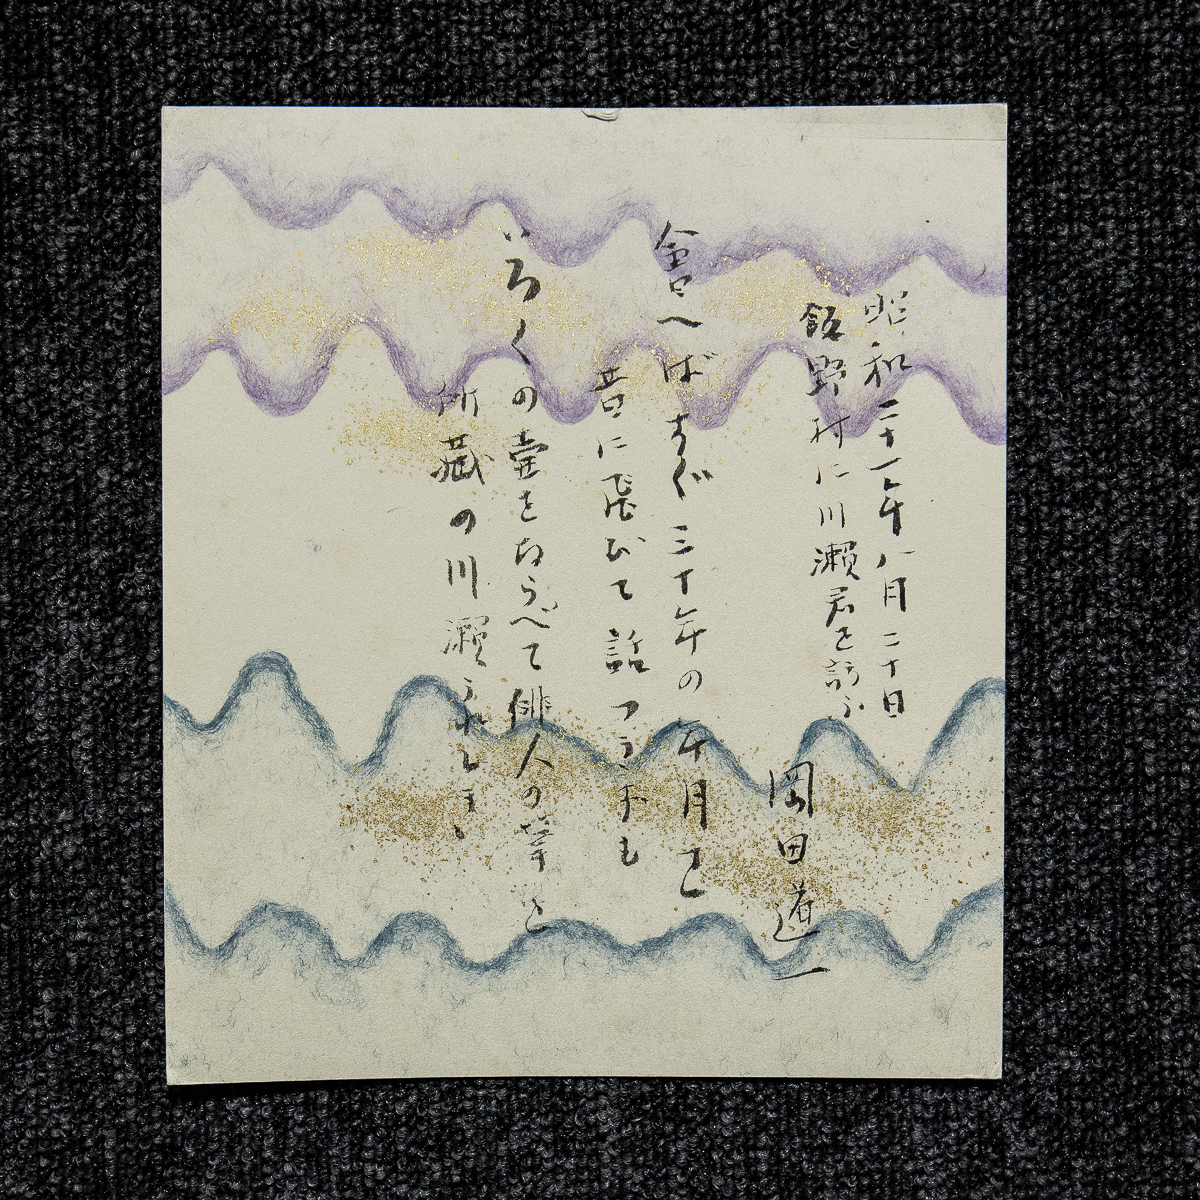 昭和二十一年八月二十日
飯野村に川瀬君を訪ふ
岡田道一
會へばすぐ三十年の年月を
昔に飛びて話つきずも
いろくの壷をならべて俳人の筆と
所蔵の川瀬うれしき